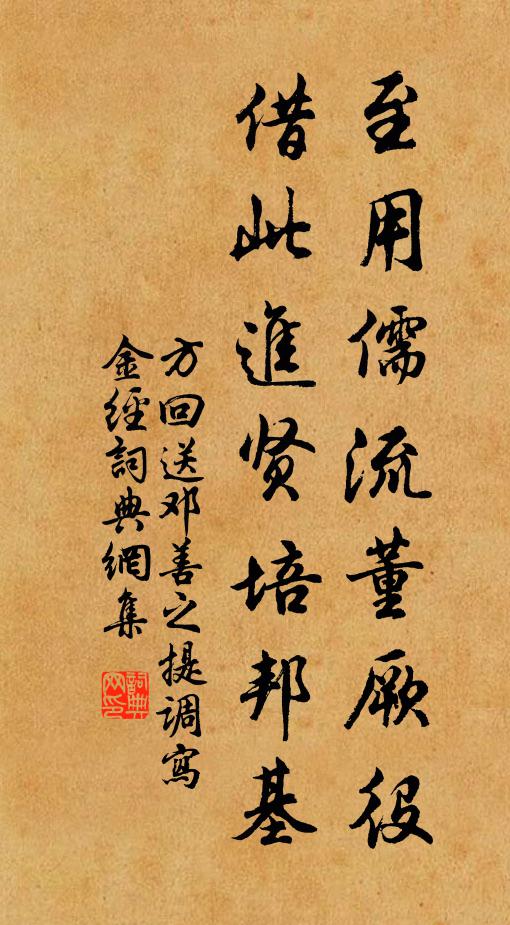 至用儒流董厥役
借此進贤培邦基
方回送邓善之提調寫
金經詞典網集
詞典
网印